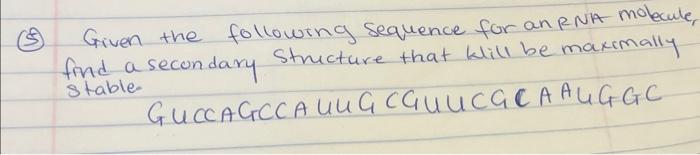 ⑤ Given the following sequence for an RNA molecule,
find a secondary structure that will be maximally
stable.
GUCCAGCCAUUGCGUUCGCAAUGGC